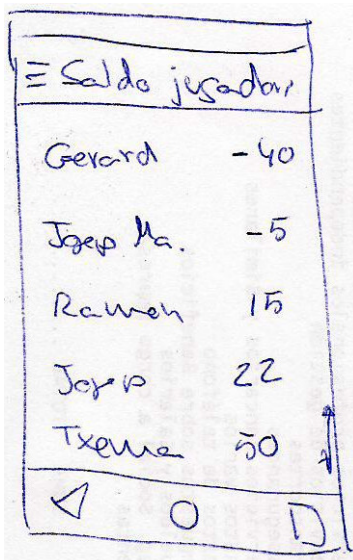 Saldo jugadors
Gerard -40
Josep Ma. -5
Ramon 15
Josep 22
Txema 50